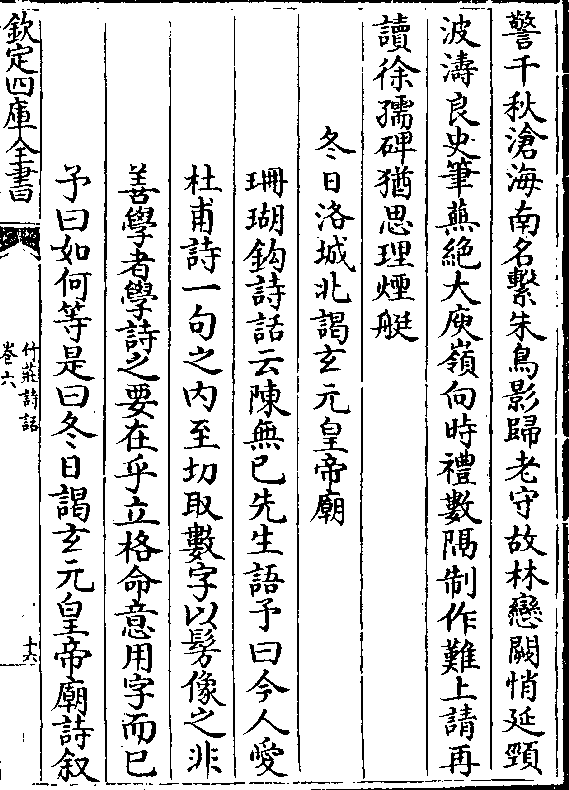 警千秋滄海南名繫朱鳥影歸老守故林戀闕悄延頸
波濤良史筆蕪絶大庾嶺向時禮數隔制作難上請再
讀徐孺碑猶思理煙艇
冬日洛城北謁𤣥元皇帝廟
珊瑚鈎詩話云陳無已先生語予曰今人愛
杜甫詩一句之内至切取數字以髣像之非
善學者學詩之要在乎立格命意用字而已
予曰如何等是曰冬日謁𤣥元皇帝廟詩叙
欽定四庫全書
竹莊詩話
卷六
十六